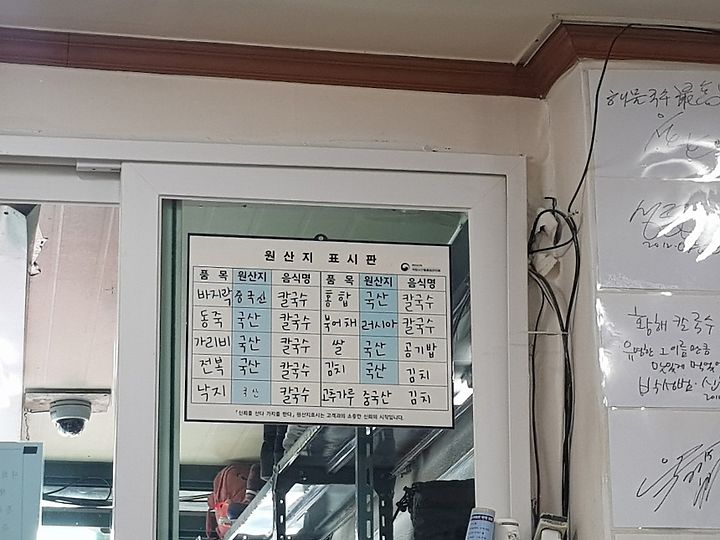 원산지 표시판
품 목 원산지 음식명 품 목 원산지 음식명
바지락 중국산 칼국수 홍합 국산 칼국수
동죽 국산 칼국수 북어채 러시아 칼국수
가리비 국산 칼국수 쌀 국산 공기밥
전복 국산 칼국수 김치 국산 김치
낙지 국산 칼국수 고추가루 중국산 김치
「신뢰를 산다 가치를 판다」 원산지표시는 고객과의 소중한 신뢰의 시작입니다.
해물국수
황해 칼국수
유명한 그 이름만큼